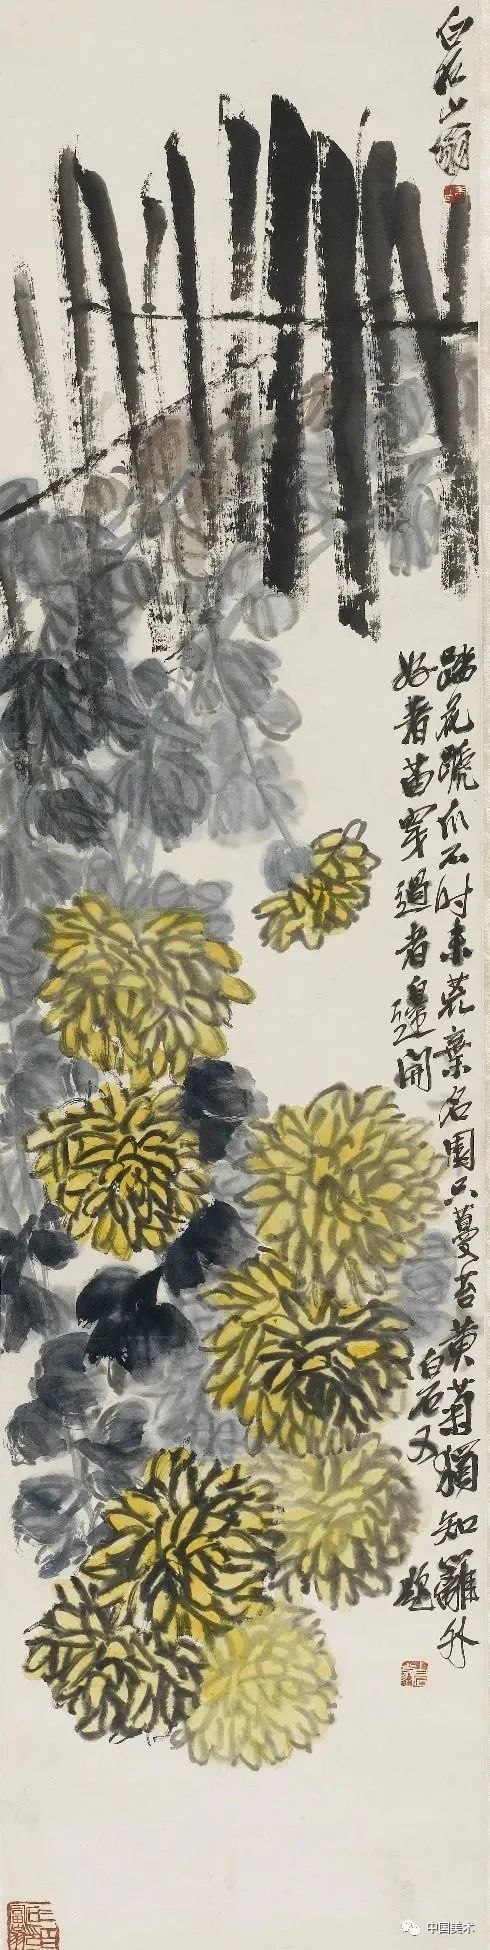 白石山翁
踏花蹏爪不时来荒棄名園只蔓苔黄菊獨知籬外
好着苗穿過者邊開
白石又題
中国美术